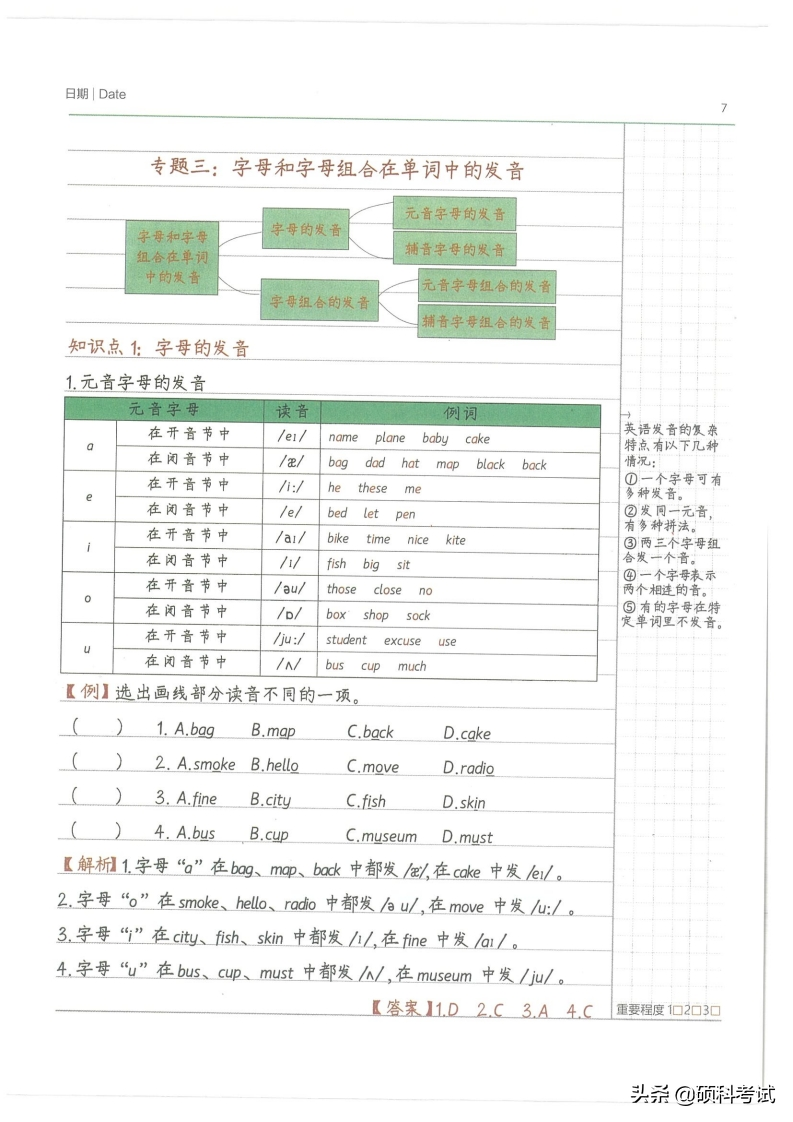 日期 | Date
7
专题三：字母和字母组合在单词中的发音
字母和字母
组合在单词
中的发音
字母的发音
元音字母的发音
辅音字母的发音
字母组合的发音
元音字母组合的发音
辅音字母组合的发音
知识点 1：字母的发音
1.元音字母的发音
元音字母 读音 例词
a 在开音节中 /eɪ/ name plane baby cake
在闭音节中 /æ/ bag dad hat map black back
e 在开音节中 /i:/ he these me
在闭音节中 /e/ bed let pen
i 在开音节中 /aɪ/ bike time nice kite
在闭音节中 /ɪ/ fish big sit
o 在开音节中 /əu/ those close no
在闭音节中 /ɒ/ box shop sock
u 在开音节中 /ju:/ student excuse use
在闭音节中 /ʌ/ bus cup much
→
英语发音的复杂
特点有以下几种
情况：
①一个字母可有
多种发音。
②发同一元音，
有多种拼法。
③两三个字母组
合发一个音。
④一个字母表示
两个相连的音。
⑤有的字母在特
定单词里不发音。
【例】选出画线部分读音不同的一项。
（ ） 1. A.bag B.map C.back D.cake
（ ） 2. A.smoke B.hello C.move D.radio
（ ） 3. A.fine B.city C.fish D.skin
（ ） 4. A.bus B.cup C.museum D.must
【解析】1.字母“a”在bag、map、back 中都发/æ/,在cake 中发/eɪ/。
2.字母“o”在smoke、hello、radio 中都发/ə u/,在move 中发/u:/ 。
3.字母“i”在city、fish、skin 中都发/ɪ/,在fine 中发/aɪ/ 。
4.字母“u”在bus、cup、must 中都发/ʌ/,在museum 中发/ju/ 。
【答案】1.D 2.C 3.A 4.C
重要程度 1□2□3□
头条 @硕科考试